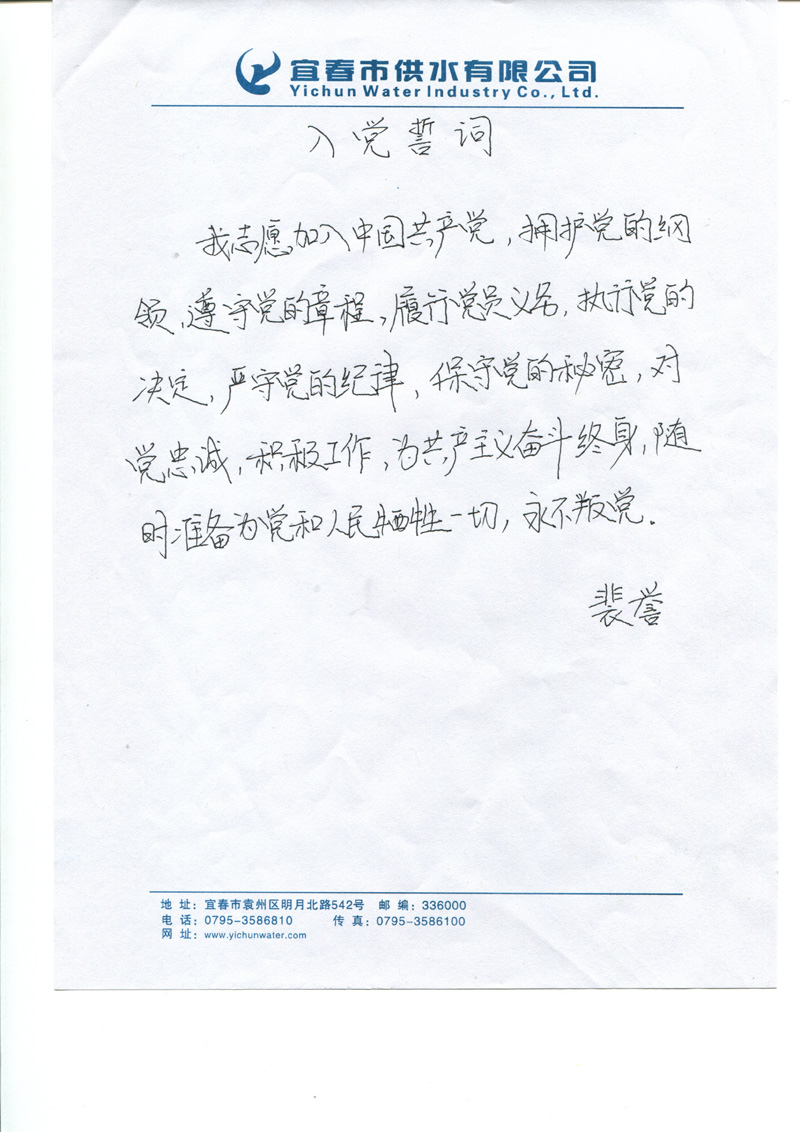 宜春市供水有限公司
Yichun Water Industry Co., Ltd.
入党誓词
我志愿加入中国共产党，拥护党的纲
领，遵守党的章程，履行党员义务，执行党的
决定，严守党的纪律，保守党的秘密，对
党忠诚，积极工作，为共产主义奋斗终身，随
时准备为党和人民牺牲一切，永不叛党．
裴誉
地 址：宜春市袁州区明月北路542号 邮 编：336000
电 话：0795-3586810 传 真：0795-3586100
网 址：www.yichunwater.com